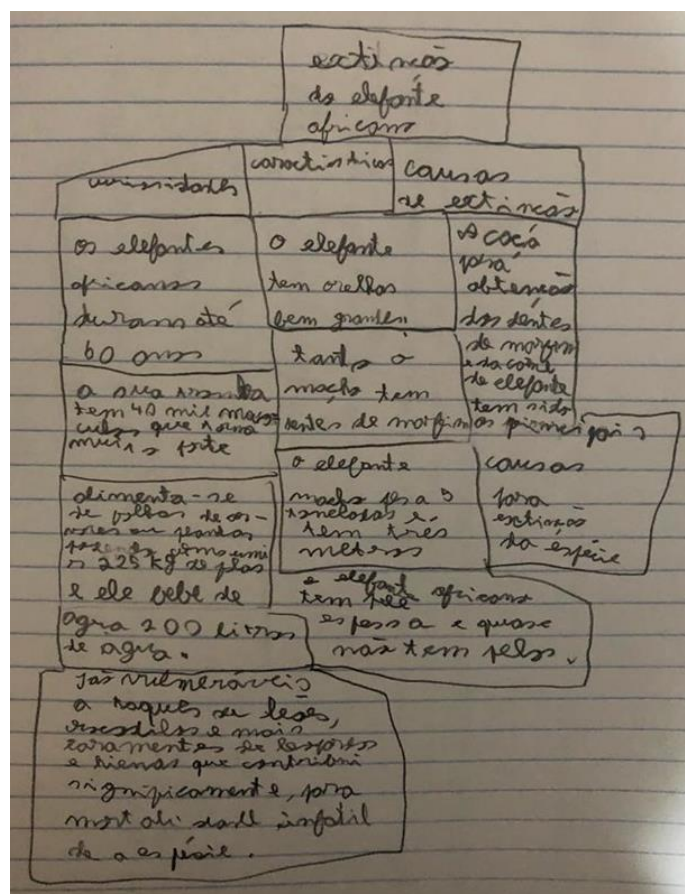 extincão
do elefante
africano
curiosidades
caractiristicas
causas
de extincão
os elefantes
africanos
duram até
60 anos
a sua tromba
tem 40 mil mus-
culos que torna
muito forte
alimenta-se
de folhas de ar-
vores ou plantas
podendo consumi
r 225 kg de plas
e ele bebe de
agua 200 litros
de agua.
são vulneráveis
a taques de leões,
crocodilos e mais
raramentes de leopardos
e hienas que contribui
significamente, para
mortalidade infatil
de a espécie.
o elefante
tem orelhas
bem grandes
tanto o
macho tem
dentes de marfim
o elefante
macho pesa 5
toneladas e
tem três
metros
o elefante africano
tem pele
espessa e quase
não tem pelos.
A caça
para
obtencão
dos dentes
de marfim
e da carne
de elefante
tem sido
as principais
causas
para
extincão
da espécie